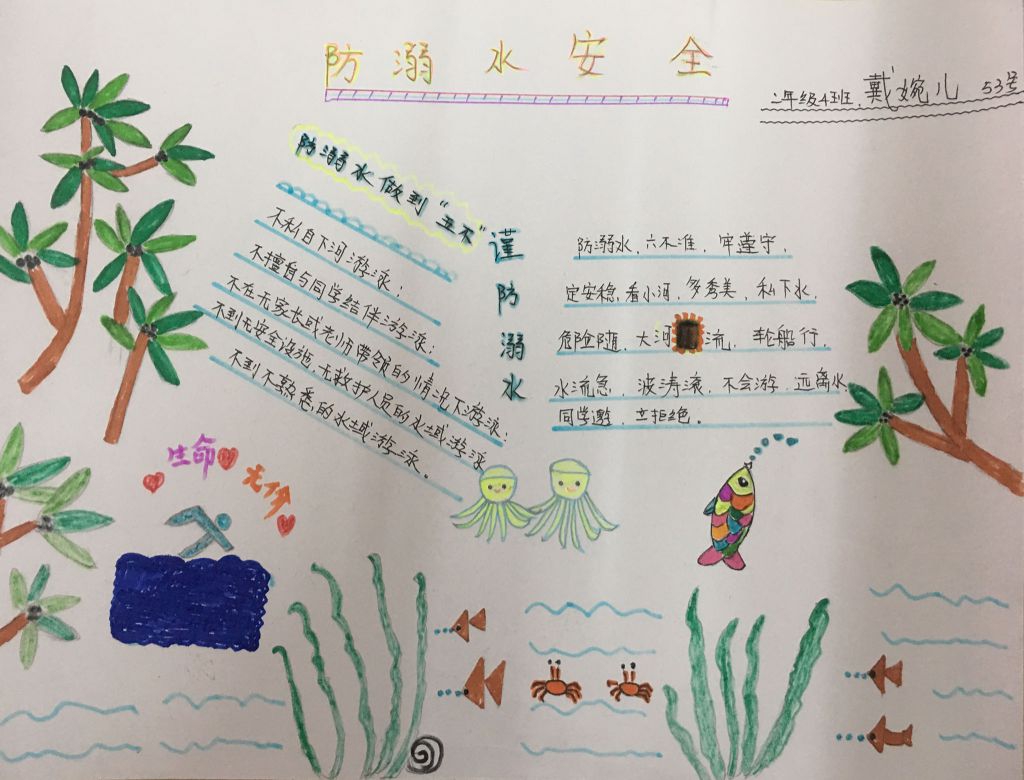 防溺水安全
二年级4班 戴婉儿 53号
防溺水做到“五不”
不私自下河游泳；
不擅自与同学结伴游泳；
不在无家长或老师带领的情况下游泳；
不到无安全设施，无救护人员的水域游泳
不到不熟悉的水域游泳。
谨防溺水
防溺水，六不准，牢遵守，
定安稳，看小河，多秀美，私下水，
危险随，大河流，轮船行，
水流急，波涛滚，不会游，远离水
同学邀，立拒绝。
生命无价